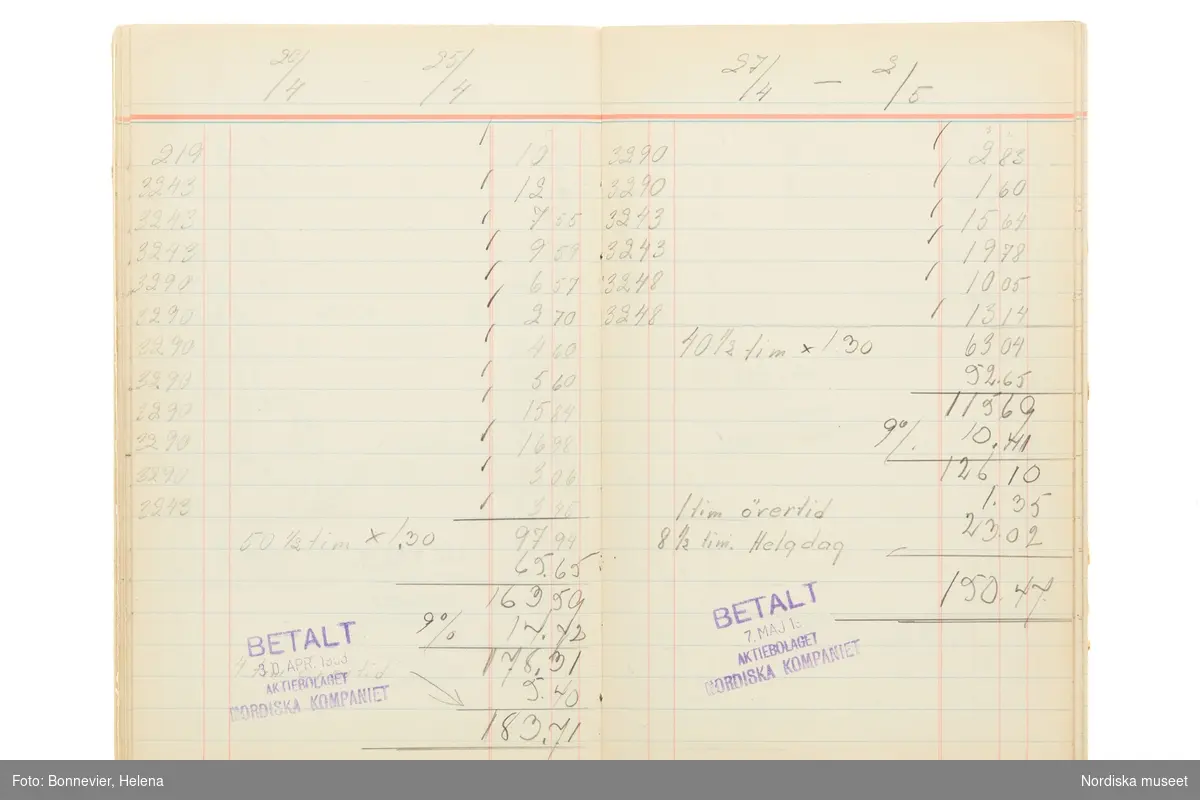 20/4 25/4
219 12
3243 12
3243 7 55
3243 9 59
3290 6 57
3290 2 70
3290 4 60
3290 5 60
3290 15 84
3290 16 98
3290 3 06
3243 3 95
50 1/2 tim × 1.30 97 94
65.65
163,59
9% 14.72
178,31
5.40
183.71
BETALT
30. APR.
AKTIEBOLAGET
NORDISKA KOMPANIET
27/4 — 2/5
3290 2 83
3290 1 60
3243 15 64
3243 19 78
3248 10 05
3248 13 14
40 1/2 tim × 1.30 63 04
52.65
115 69
9% 10.41
126,10
1 tim övertid 1.35
8 1/2 tim. Helgdag 23.02
150.47
BETALT
7. MAJ
AKTIEBOLAGET
NORDISKA KOMPANIET
Foto: Bonnevier, Helena
Nordiska museet